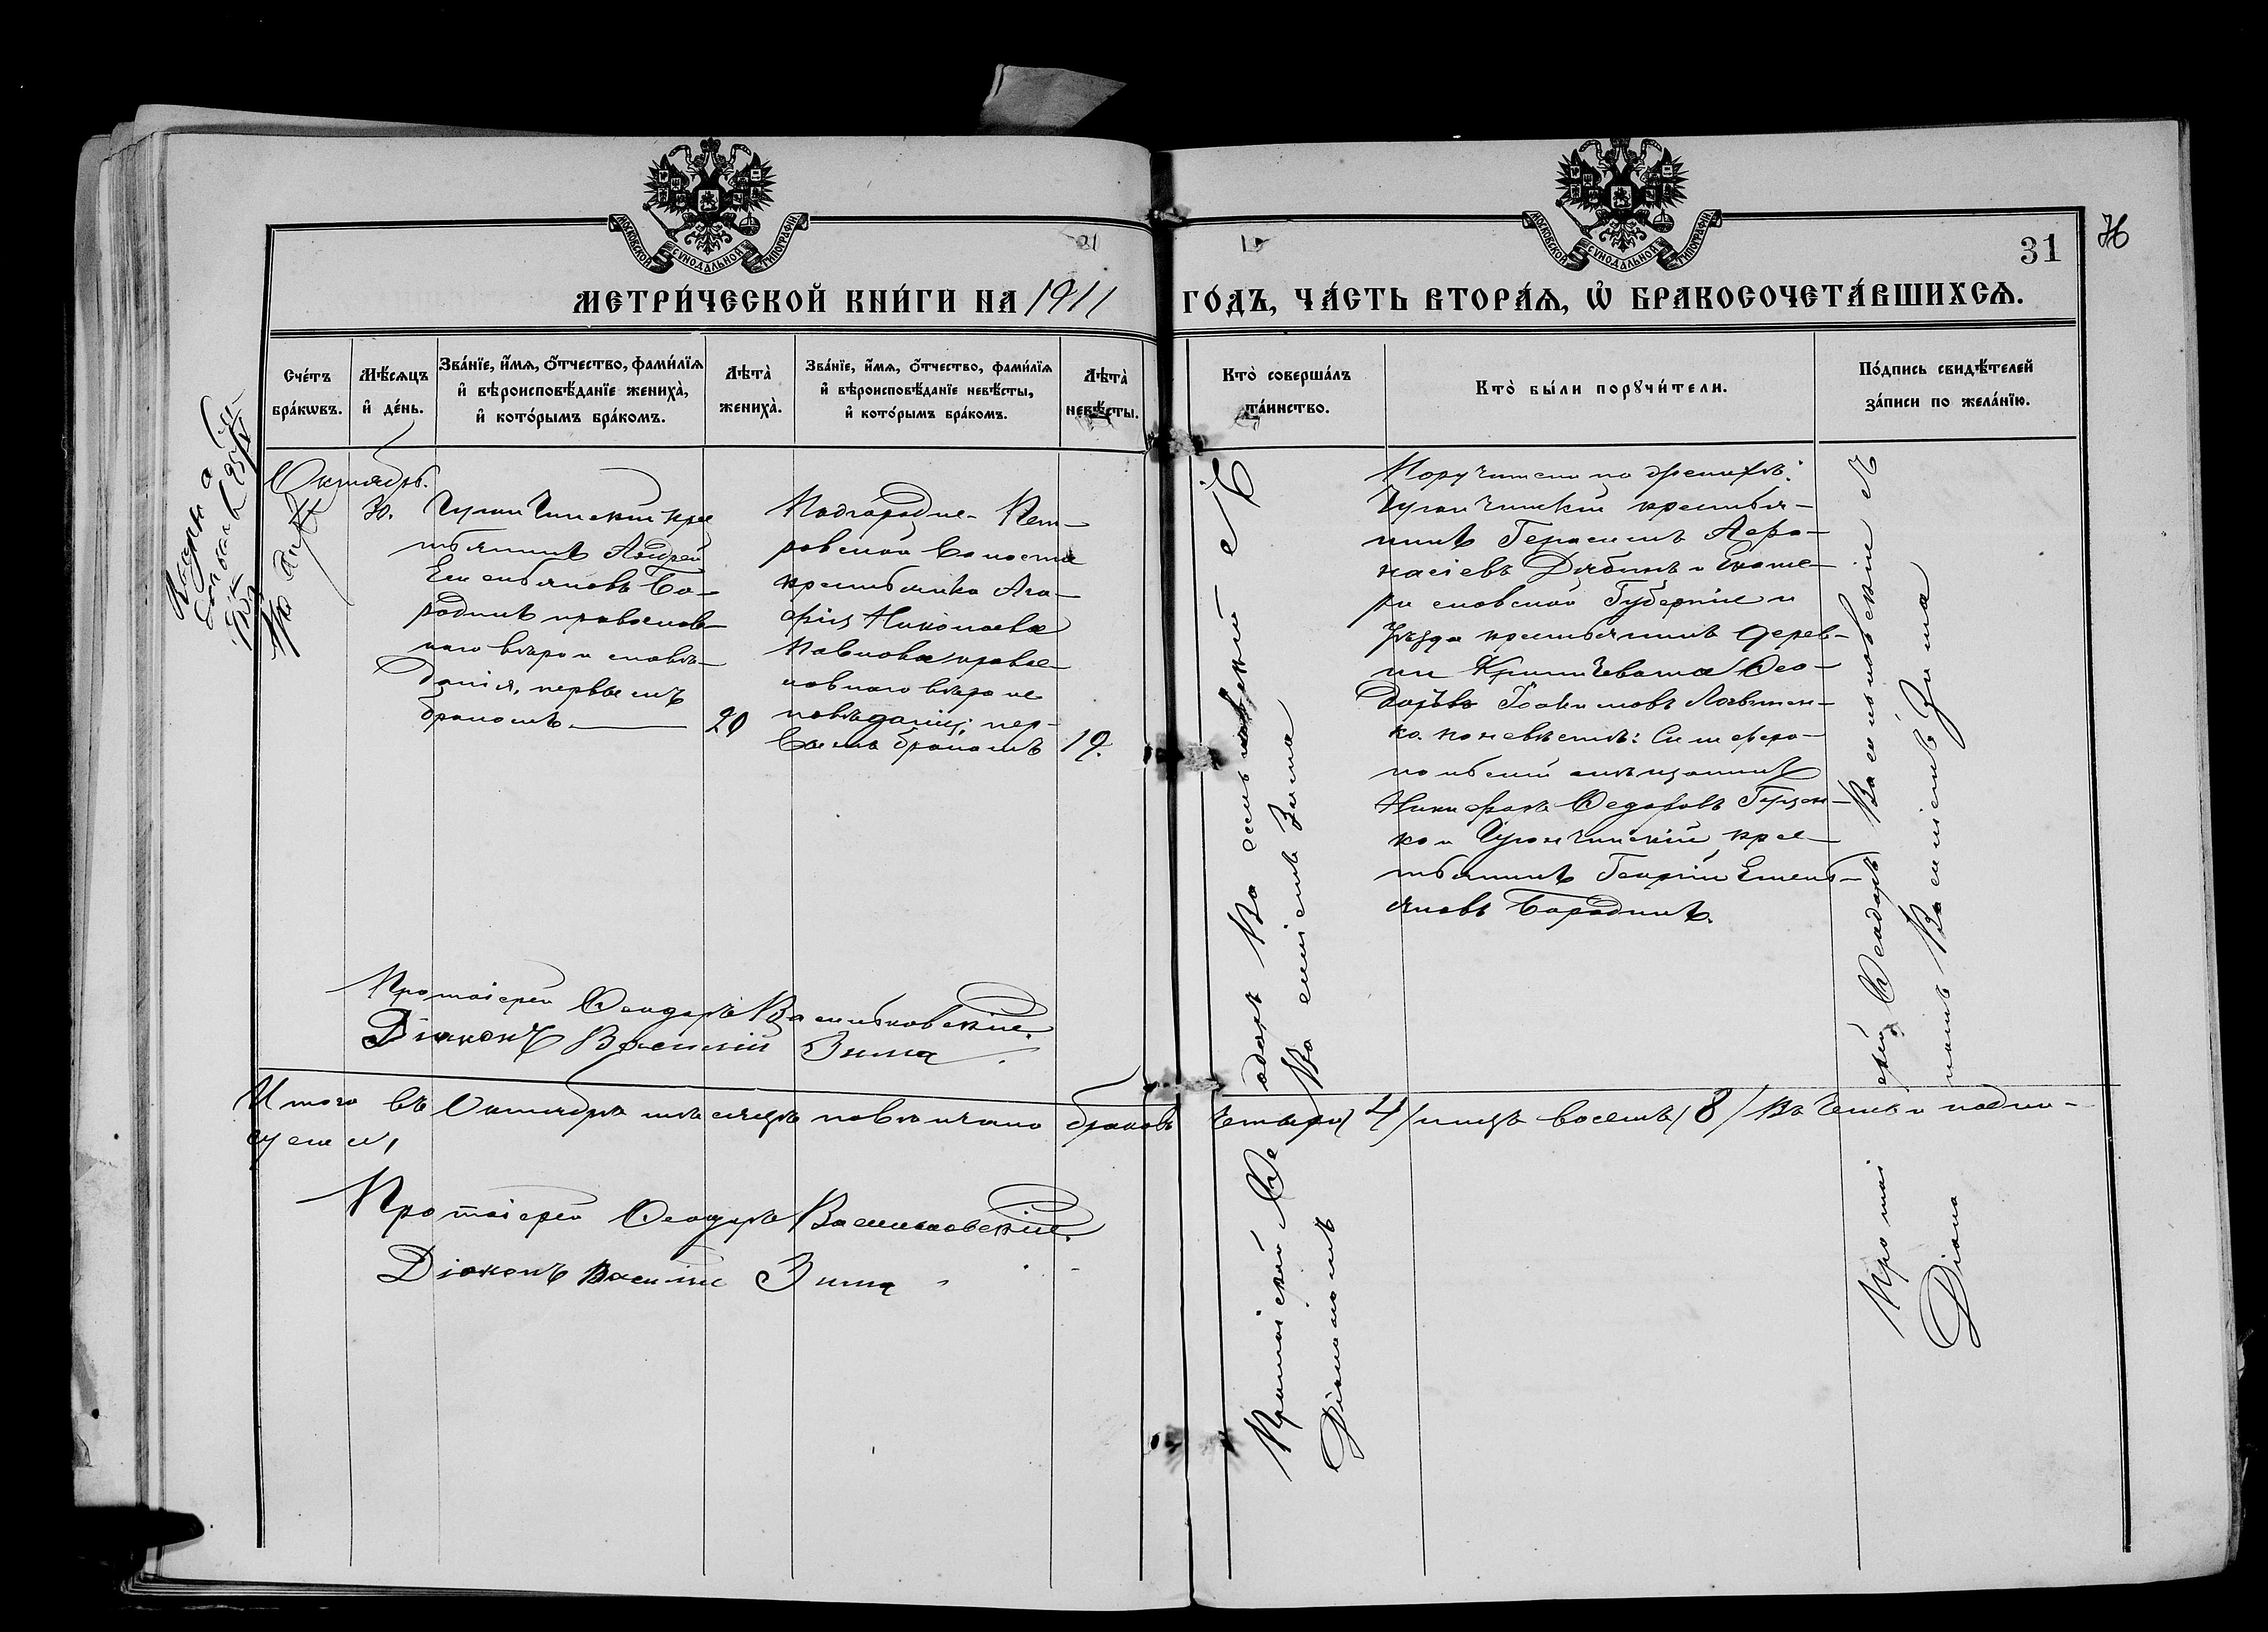 МОСКОВСКОЙ СУНОДАЛЬНОЙ ТИПОГРАФІИ
МОСКОВСКОЙ СУНОДАЛЬНОЙ ТИПОГРАФІИ
31
МЕТРИ́ЧЕСКОЙ КНИ́ГИ НА 1911 ГО́ДЪ, ЧА́СТЬ ВТОРА́Ѧ, Ѡ҆ БРАКОСОЧЕТА́ВШИХСѦ.
Сче́тъ бра́кѡвъ.
Мѣ́сѧцъ и҆ де́нь.
Зва́нїе, и҆́мѧ, ѻ҆́тчество, фами́лїѧ и҆ вѣроисповѣ́данїе жениха̀, и҆ кото́рымъ бра́комъ.
Лѣта̀ жениха̀.
Зва́нїе, и҆́мѧ, ѻ҆́тчество, фами́лїѧ и҆ вѣроисповѣ́данїе невѣ́сты, и҆ кото́рымъ бра́комъ.
Лѣта̀ невѣ́сты.
Кто̀ соверша́лъ та́инство.
Кто̀ бы́ли порꙋчи́тели.
По́дпись свидѣ́телей за́писи по жела́нїю.
Октябрь.
30.
кре-
стьянинъ Андрей
Емельяновъ Бо-
родинъ православ-
наго вѣроисповѣ-
данія, первымъ
бракомъ
20
Подгородне- Пет-
ровской волости
крестьянка Ага-
фія Николаева
Павлова правос-
лавнаго вѣроис-
повѣданія, пер-
вымъ бракомъ
19.
Протоіерей Ѳеодоръ Васильковскій
Діакономъ Василіемъ Зима
Поручители по женихѣ:
крестья-
нинъ Герасимъ Афа-
насіевъ Дябинъ и Екате-
ринославской Губерніи и
Уѣзда крестьянинъ дерев-
ни Ѳео-
доръ
ко. по невѣстѣ: Симферо-
польскій мѣщанинъ
Никифоръ Ѳедоровъ
ко и кре-
стьянинъ Георгій Емель-
яновъ Бородинъ.
Протоіерей Ѳеодоръ Васильковскій
Діаконъ Василій Зима
Протоіерей Ѳеодоръ Васильковскій.
Діаконъ Василій Зима
Итого въ Октябрѣ мѣсяцѣ повѣнчано браковъ четыре /4/ лицъ восемь /8/ въ чемъ и подпи-
суемся,
Протоіерей Ѳеодоръ Васильковскій.
Діаконъ Василій Зима